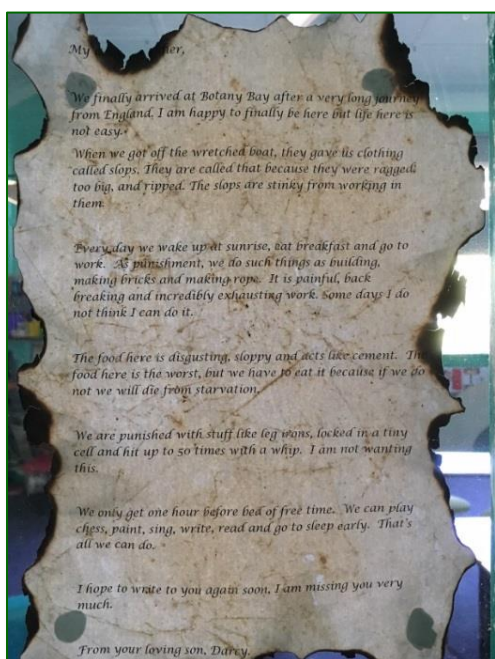 My
We finally arrived at Botany Bay after a very long journey
from England. I am happy to finally be here but life here is
not easy.
When we got off the wretched boat, they gave us clothing
called slops. They are called that because they were ragged,
too big, and ripped. The slops are stinky from working in
them.
Every day we wake up at sunrise, eat breakfast and go to
work. As punishment, we do such things as building,
making bricks and making rope. It is painful, back
breaking and incredibly exhausting work. Some days I do
not think I can do it.
The food here is disgusting, sloppy and acts like cement. The
food here is the worst, but we have to eat it because if we do
not we will die from starvation.
We are punished with stuff like leg irons, locked in a tiny
cell and hit up to 50 times with a whip. I am not wanting
this.
We only get one hour before bed of free time. We can play
chess, paint, sing, write, read and go to sleep early. That's
all we can do.
I hope to write to you again soon, I am missing you very
much.
From your loving son, Darcy.